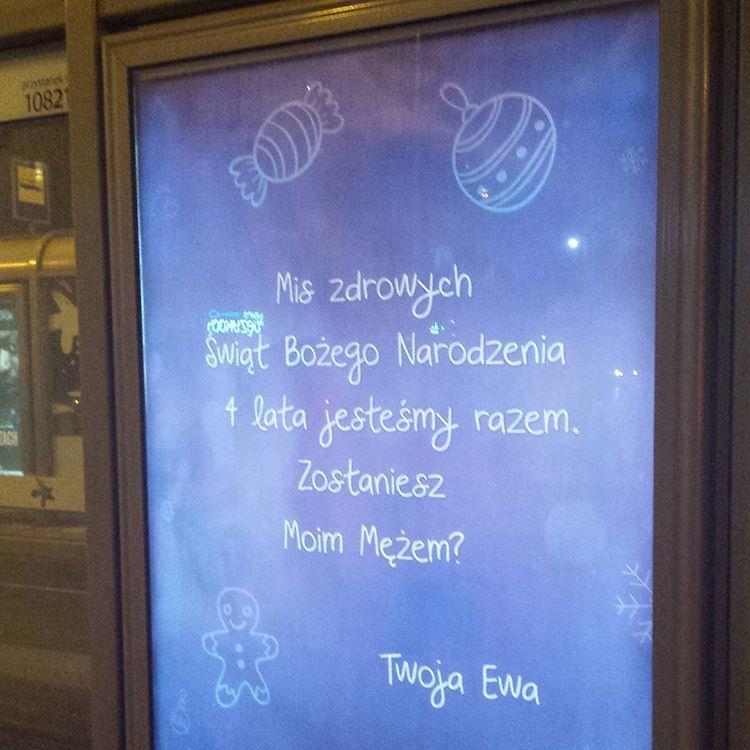 przystanek
10821
Mis zdrowych
Świąt Bożego Narodzenia
4 lata jesteśmy razem.
Zostaniesz
Moim Mężem?
Twoja Ewa